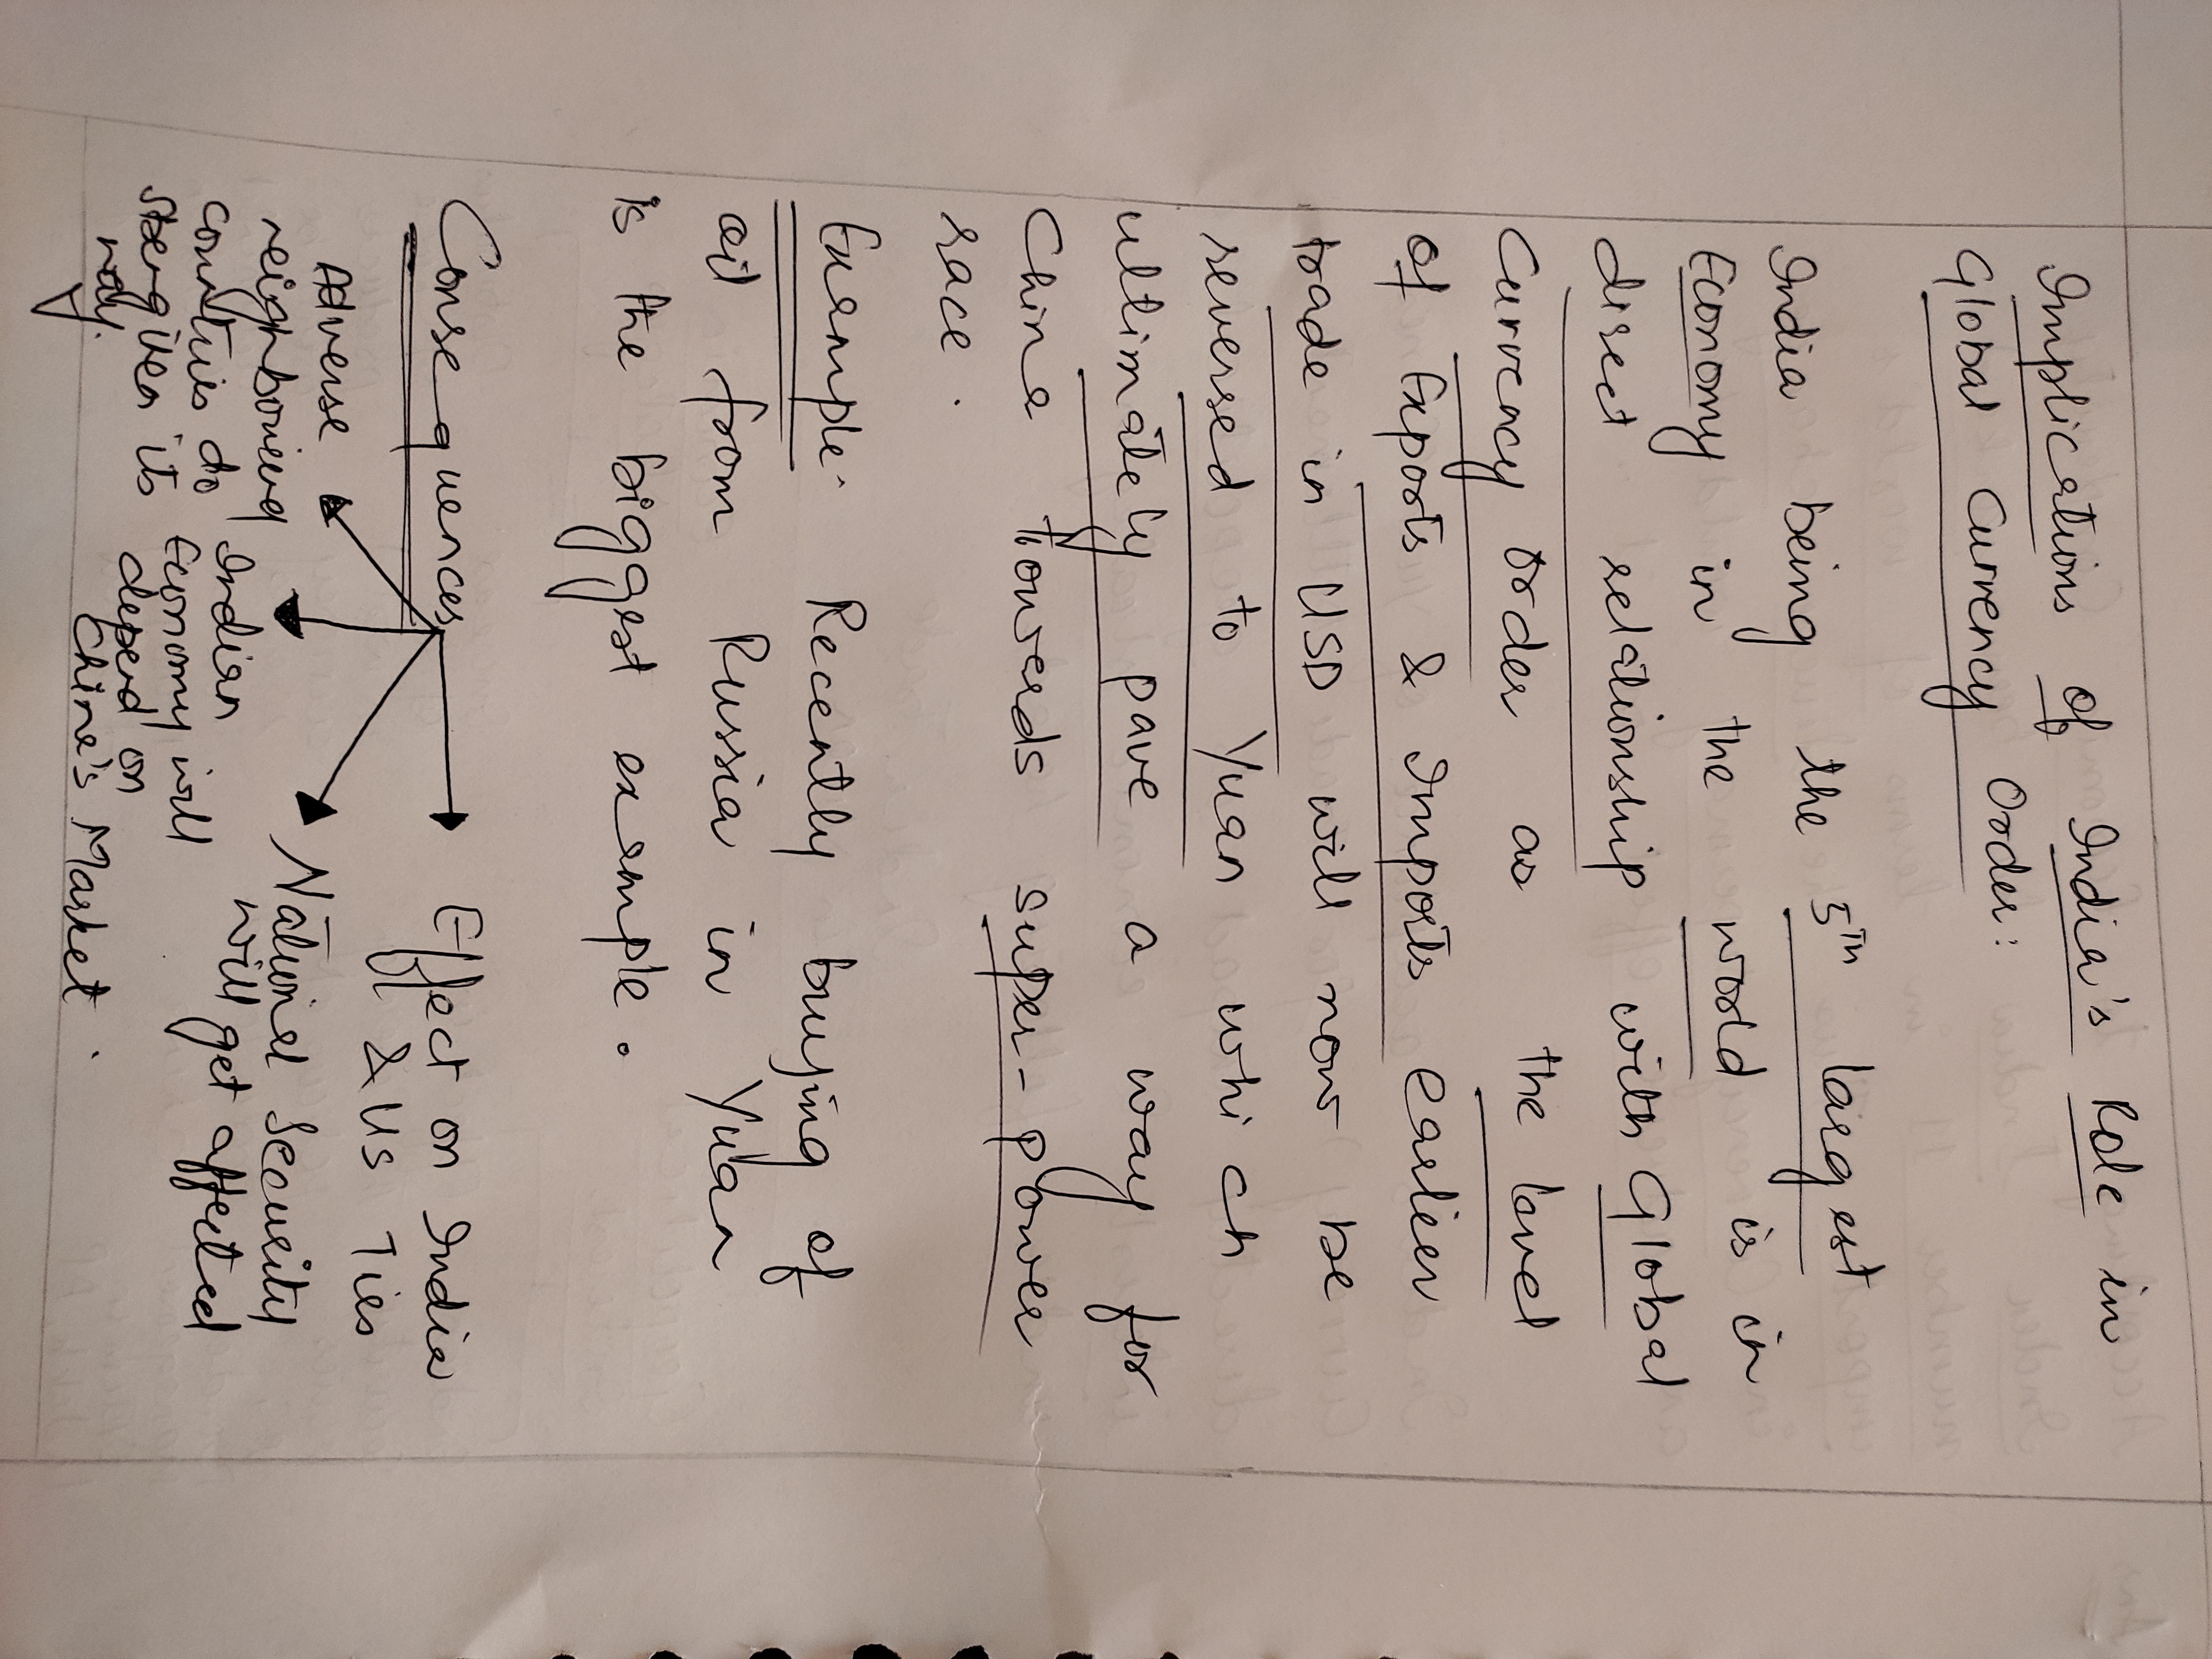 Implications of India's Role in
Global Currency Order:
India being the 5th largest
Economy in the world is in
direct relationship with Global
Currency order as the level
of Exports & Imports earlier
trade in USD will now be
reversed to Yuan which
ultimately pave a way for
China towards super-power
race.
Example: Recently buying of
oil from Russia in Yuan
is the biggest example.
Consequences
Effect on India
& US Ties
National Security
will get affected
Indian
Economy will
depend on
China's Market.
Adverse
neighbouring
countries do
strengthen its